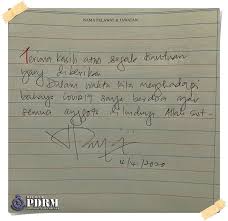 NAMA PELAWAT & JAWATAN
Terima kasih atas segala bantuan
yang diberikan
Dalam waktu kita menghadapi
bahaya covid19 saya berdoa agar
semua anggota di lindungi Allah swt.
4/4/2020
PDRM